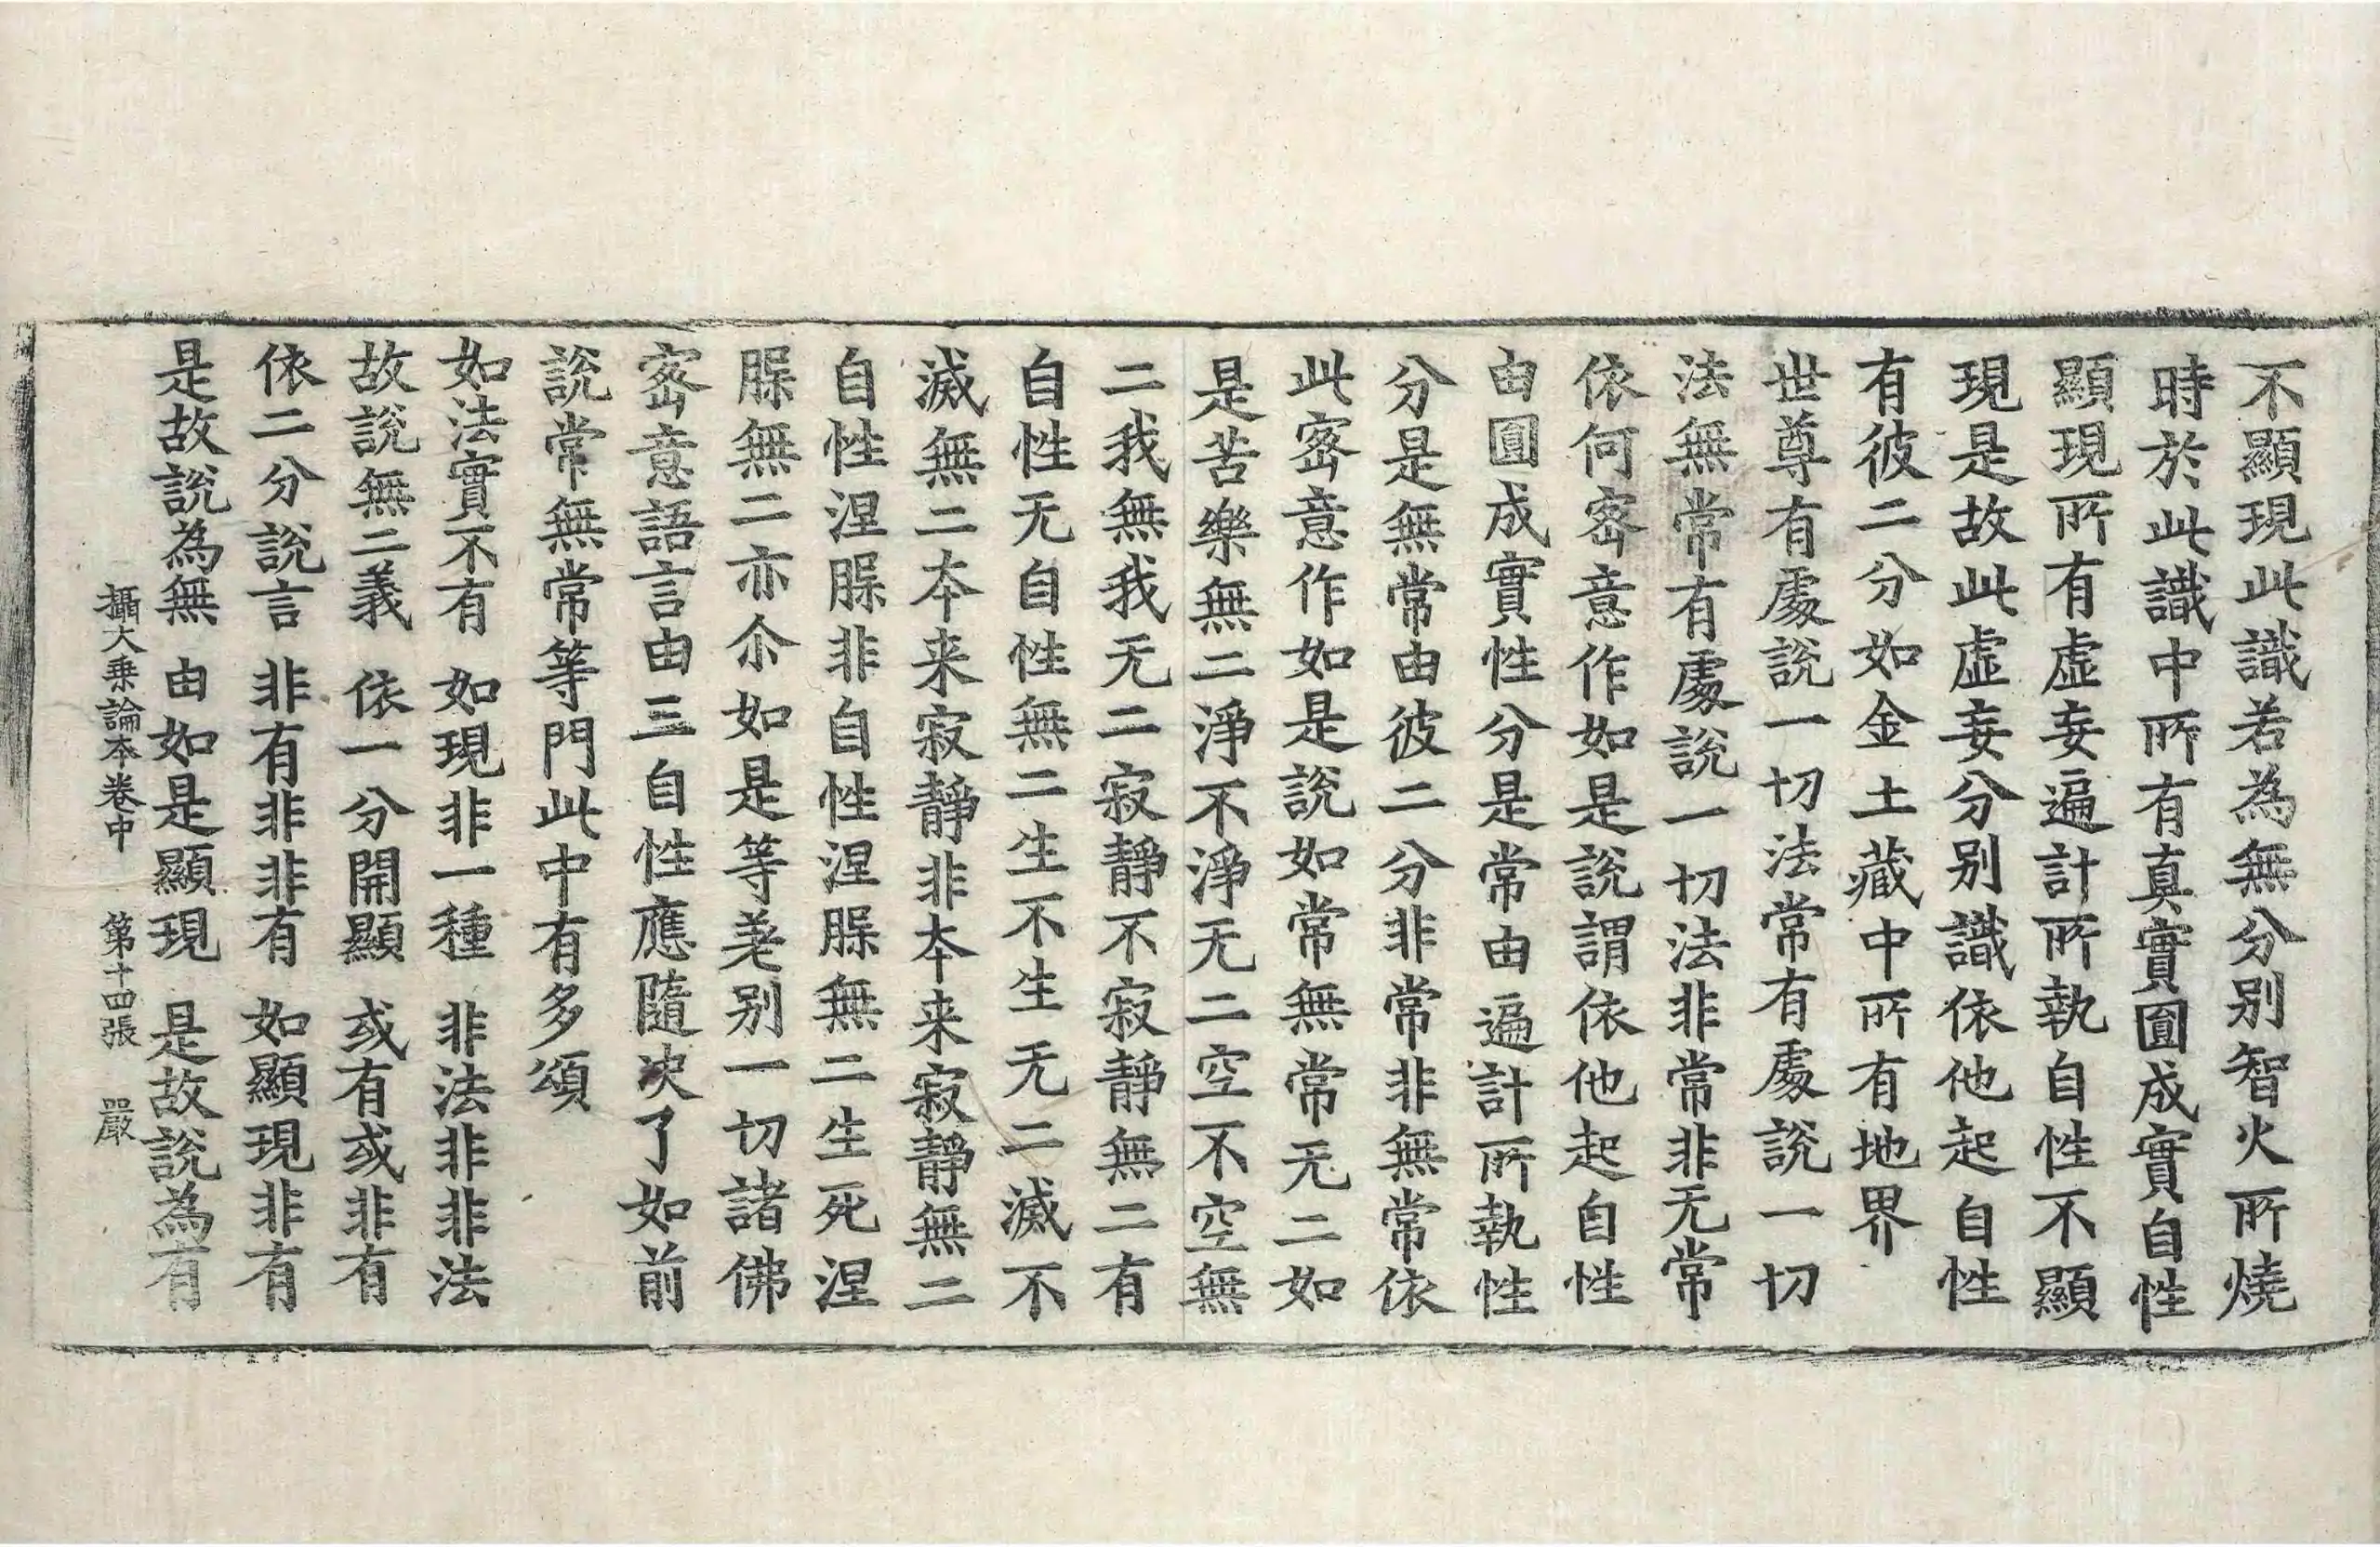 不顯現此識若為無分别智火所燒
時於此識中所有真實圓成實自性
顯現所有虛妄遍計所執自性不顯
現是故此虛妄分别識依他起自性
有彼二分如金土藏中所有地界
世尊有處說一切法常有處說一切
法無常有處說一切法非常非无常
依何密意作如是說謂依他起自性
由圓成實性分是常由遍計所執性
分是無常由彼二分非常非無常依
此密意作如是說如常無常无二如
是苦樂無二淨不淨无二空不空無
二我無我无二寂靜不寂靜無二有
自性无自性無二生不生无二滅不
滅無二本来寂靜非本来寂靜無二
自性涅槃非自性涅槃無二生死涅
槃無二亦尒如是等差别一切諸佛
密意語言由三自性應隨决了如前
說常無常等門此中有多頌
如法實不有　如現非一種　非法非非法
故說無二義　依一分開顯　或有或非有
依二分說言　非有非非有　如顯現非有
是故說為無　由如是顯現　是故說為有
攝大乗論本卷中　第十四張　嚴